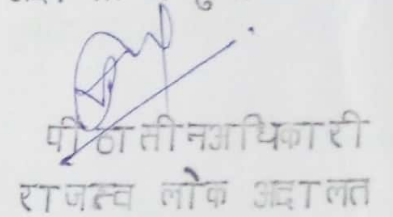 पीठासीनअधिकारी
राजस्व लोक अदालत